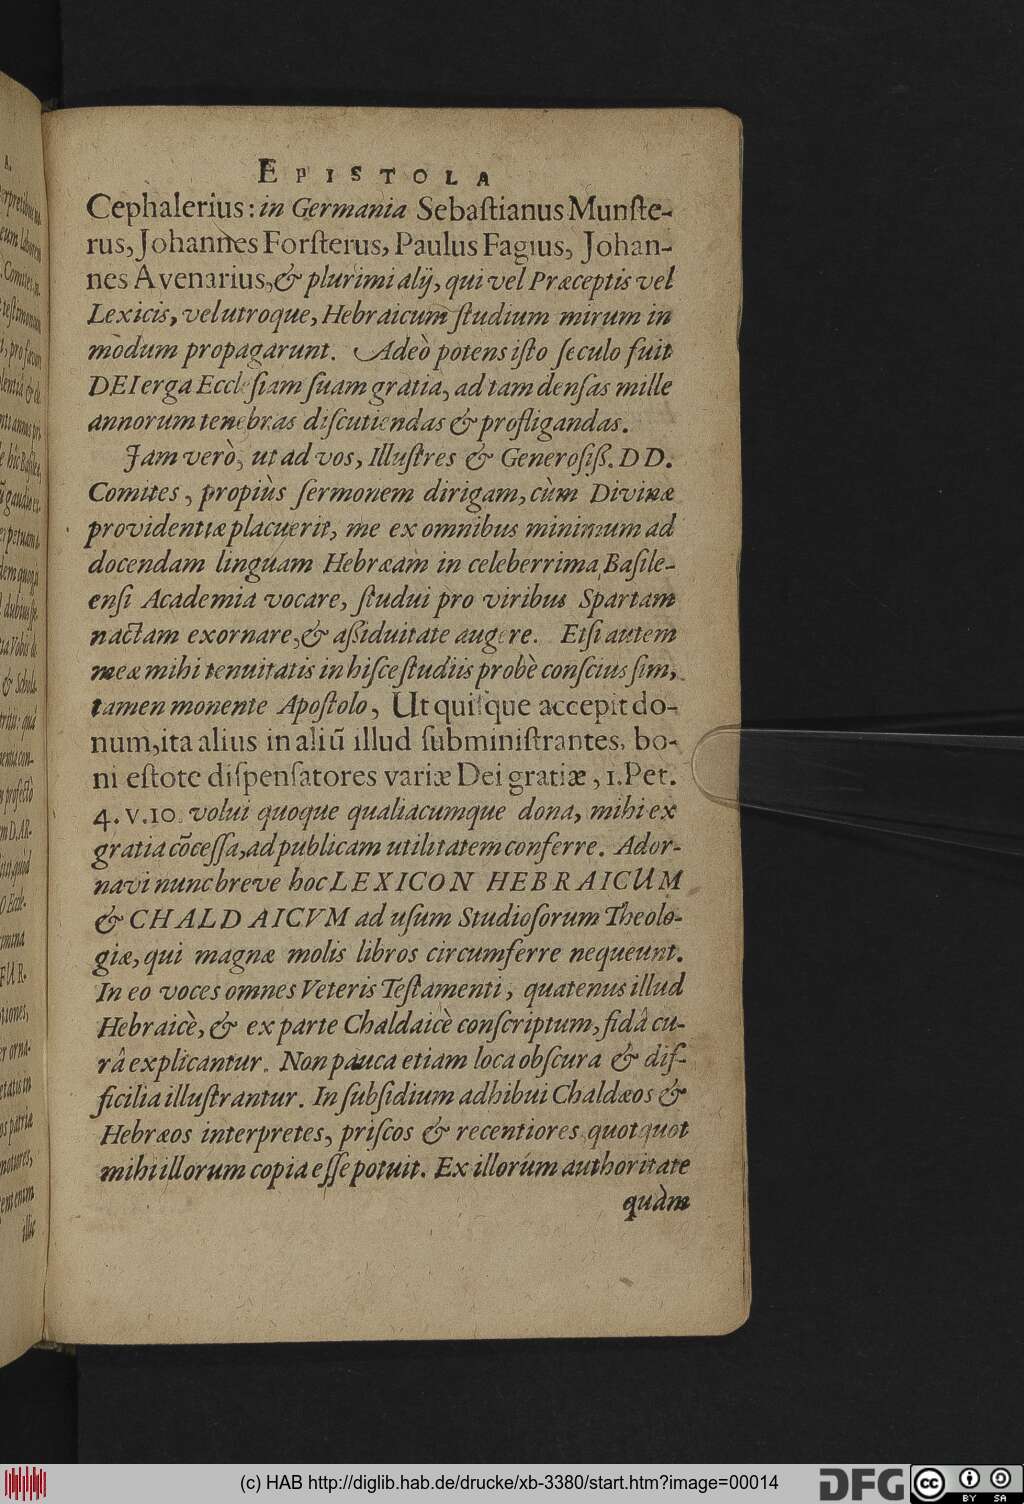 EPISTOLA
Cephalerius: in Germania Sebaſtianus Munſte-
rus, Johannes Forſterus, Paulus Fagius, Johan-
nes Avenarius, & plurimi alij, qui vel Præceptis vel
Lexicis, vel utroque, Hebraicum ſtudium mirum in
modum propagarunt. Adeò potens iſto ſeculo fuit
DEI erga Eccleſiam ſuam gratia, ad tam denſas mille
annorum tenebras diſcutiendas & profligandas.
Jam verò, ut ad vos, Illuſtres & Generoſiß. DD.
Comites, propiùs ſermonem dirigam, cùm Divinæ
providentiæ placuerit, me ex omnibus minimum ad
docendam linguam Hebræam in celeberrima Baſile-
enſi Academia vocare, ſtudui pro viribus Spartam
nactam exornare, & aßiduitate augere. Etſi autem
meæ mihi tenuitatis in hiſce ſtudiis probè conſcius ſim,
tamen monente Apoſtolo, Ut quiſque accepit do-
num, ita alius in aliũ illud ſubminiſtrantes, bo-
ni eſtote diſpenſatores variæ Dei gratiæ, 1. Pet.
4. v. 10. volui quoque qualiacumque dona, mihi ex
gratia cõceſſa, ad publicam utilitatem conferre. Ador-
navi nunc breve hoc LEXICON HEBRAICUM
& CHALDAICVM ad uſum Studioſorum Theolo-
giæ, qui magnæ molis libros circumferre nequeunt.
In eo voces omnes Veteris Teſtamenti, quatenus illud
Hebraicè, & ex parte Chaldaicè conſcriptum, fidâ cu-
râ explicantur. Non pauca etiam loca obſcura & dif-
ficilia illuſtrantur. In ſubſidium adhibui Chaldæos &
Hebræos interpretes, priſcos & recentiores quotquot
mihi illorum copia eſſe potuit. Ex illorum authoritate
quàm
(c) HAB http://diglib.hab.de/drucke/xb-3380/start.htm?image=00014
DFG
cc
BY SA